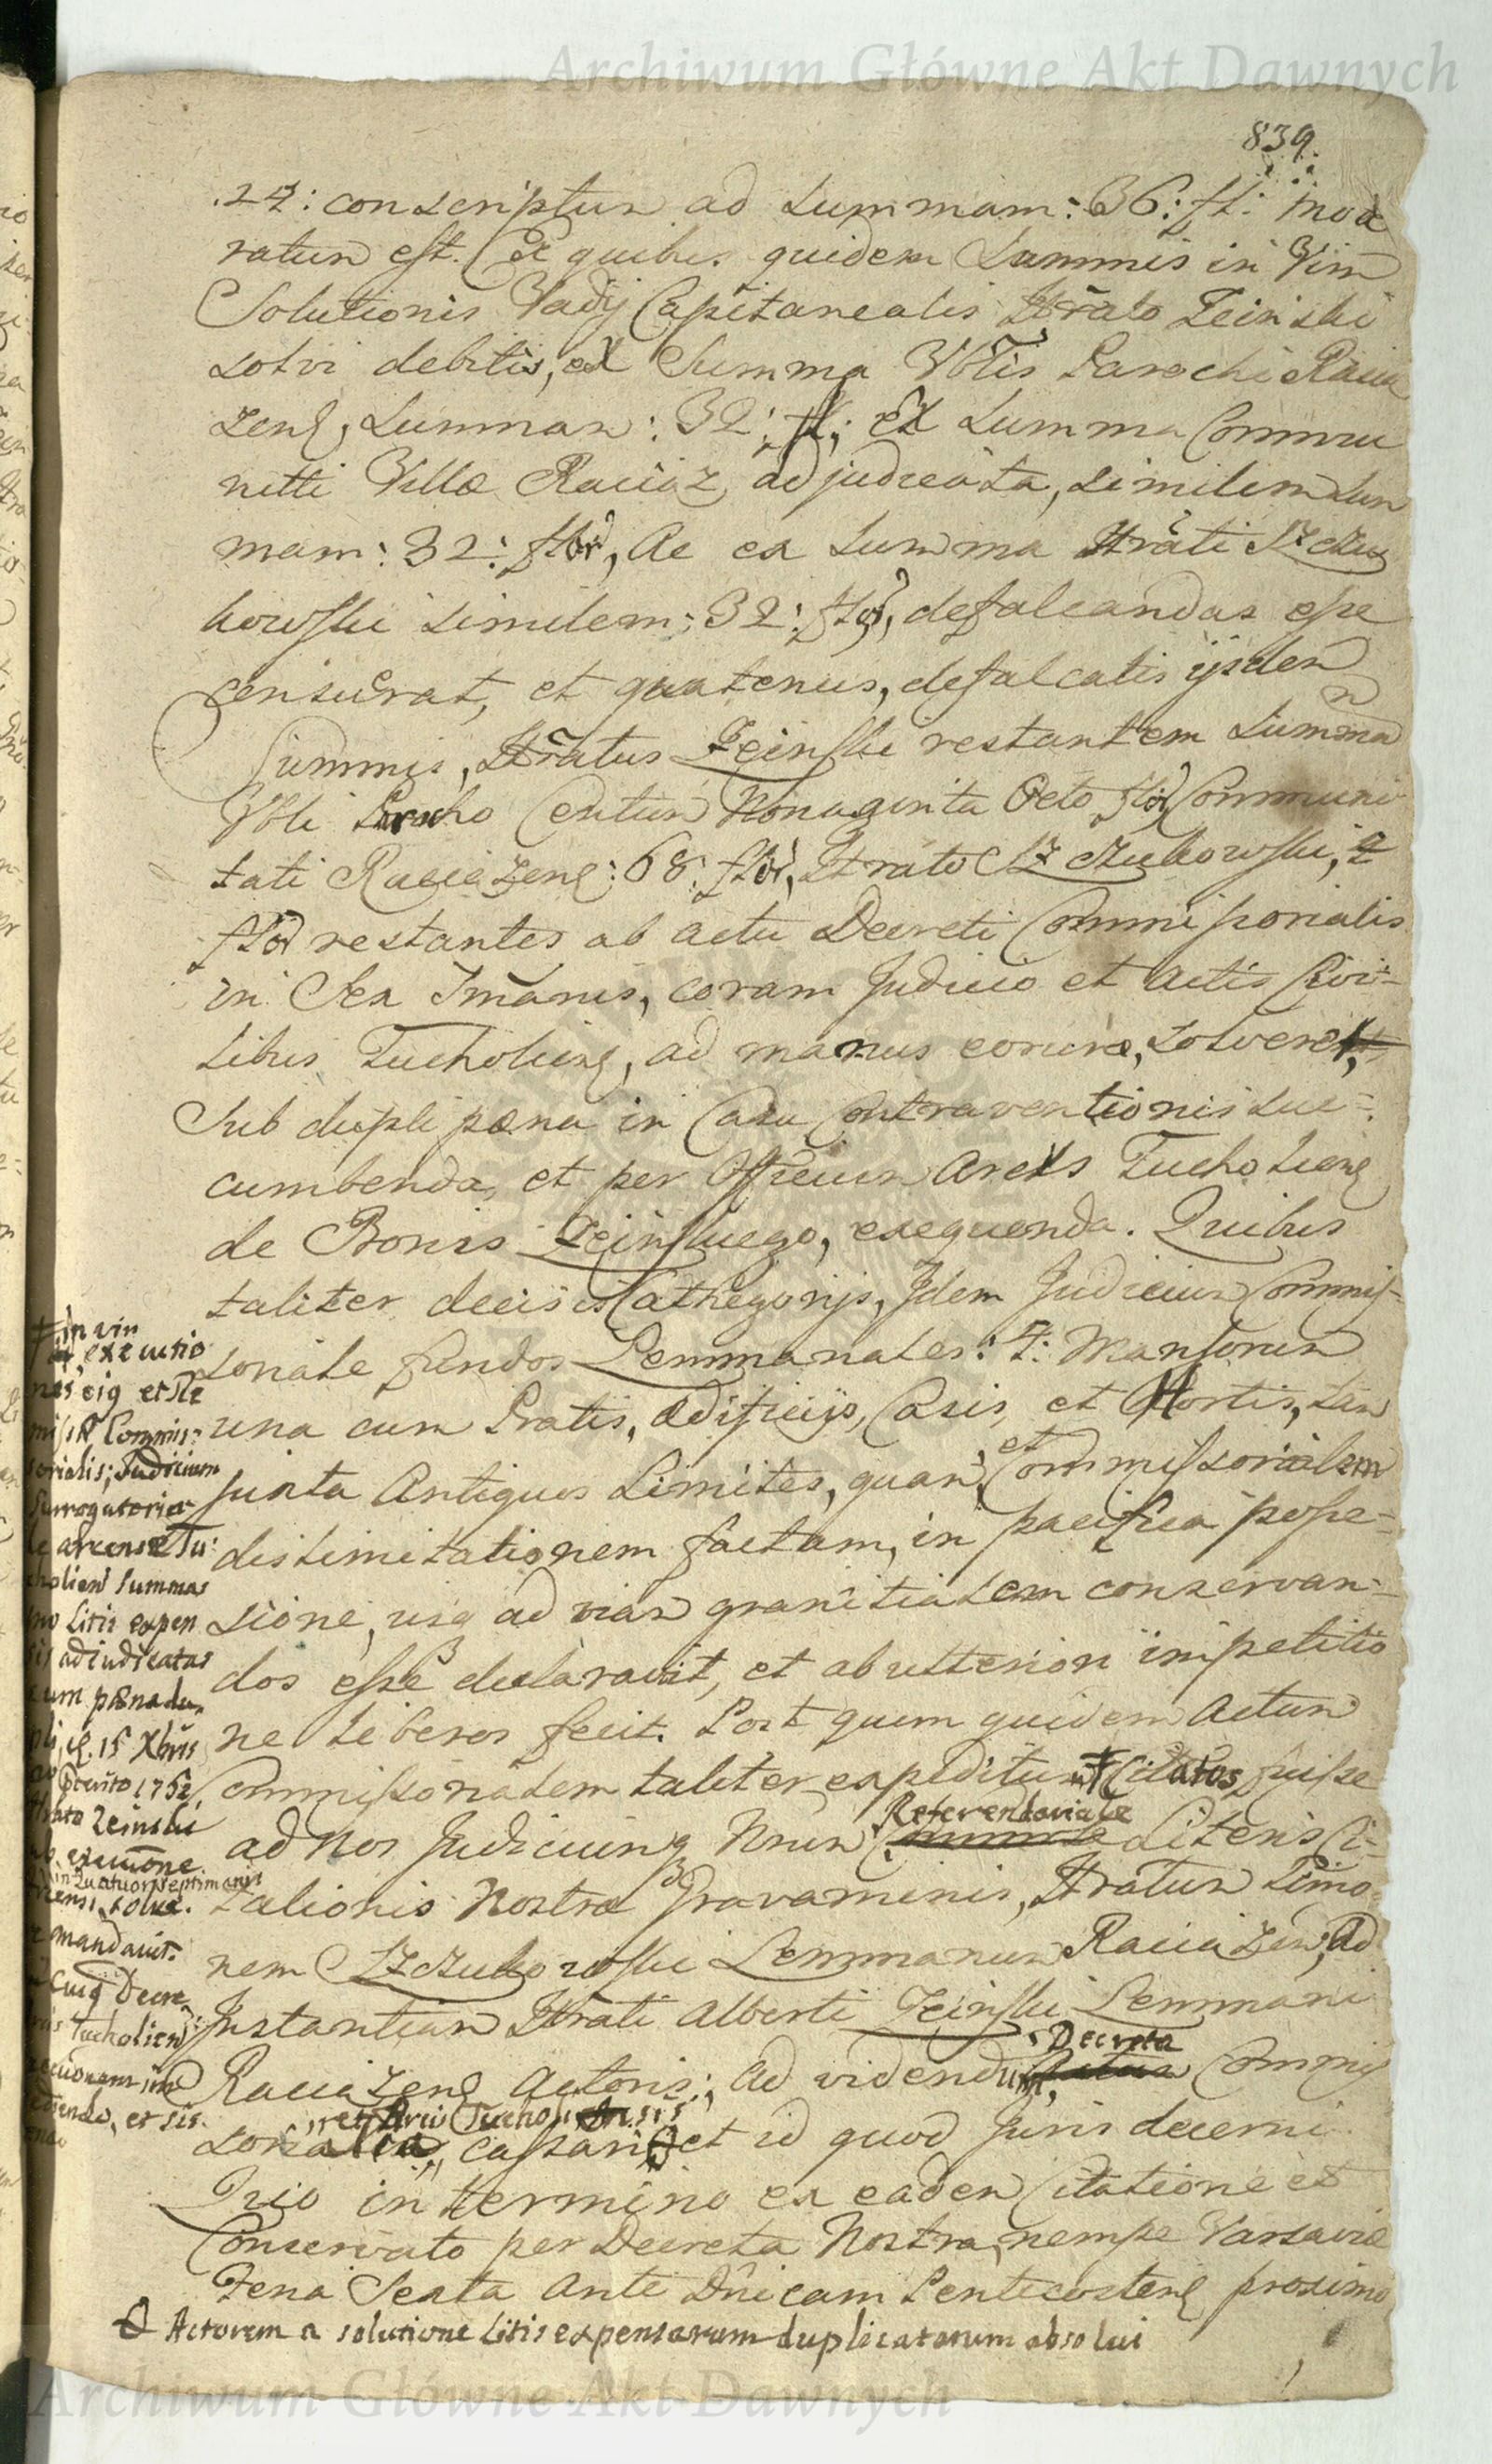 Archiwum Główne Akt Dawnych
839.
24: conscriptum ad summam: 36: fl: mode
ratum est. Ex quibus quidem Summis in Vim
Solutionis Vadij Capitanealis Hrato Zeinski
solvi debitis, ex Summa Vblis Parochi Racia
zens, summam: 32: fl: Ex summa Commu
nitti Villæ Raciaz adjudicata, similem sum
mam: 32: flor, Ac ex summa Hrati Szczu
kowski similem: 32: flor, defalcandas esse
censuerat, et quatenus, defalcatis ijsdem
Summis, Hratus Zeinski restantem summam
Vbli Parocho Centum Nonaginta Octo flor Communi
tati Raciazens: 68: flor, Hrato Szczukowski, 2
flor restantes ab actu Decreti Commissorialis
in Sex Septimanis, coram Judicio et Actis Civi-
libus Tucholiens, ad manus eorum, solveret,
Sub dupli pæna in Casu Contraventionis suc-
cumbenda, et per Officium Arcis Tucholiens
de Bonis Zeinskiego, exequenda. Quibus
taliter decisis Cathegorijs, Idem Judicium Commis-
soriale fundos Lemmanales: 7: Mansorum
una cum Pratis, ædificijs, Casis, et Hortis, tam
juxta Antiquos Limites, quam et Commissorialem
dislimitationem factam, in pacifica posse-
sione, usq ad viam granitialem conservan-
dos esse declaravit, et ab ulteriori impetitio
ne liberos fecit. Post quem quidem Actum
Commissorialem taliter expeditum Citatos fuisse
ad Nos Judiciumq Nrum Referendariale Literis Ci-
tationis Nostræ Gravaminis, Hratum Simo
nem Szczukowski Lemmanum Raciazen, Ad
Instantiam Hrati Alberti Zeinski Lemmani
Raciazens Actoris; ad videndum, Decreta Commis
sorialia, et Arcis Tucholiensis cassari et id quod Juris decerni
Quo in termino ex eadem Citatione et
Conservato per Decreta Nostra, nempe Varsaviæ
Feria Sexta Ante Dnicam Pentecostens proximo
Actorem a solutione Litis expensarum duplicatarum absolui
in vim
executio
nis eiq et Re
miss Commis:
sorialis; Judicium
Surrogatoria
le arcense Tu:
choliens Summas
uno Litis expen
sis adiudicatas
cum pæna du
pli, d. 15 Xbris
præterito 1762
Hrato Zeinski
ab execuõne
in Quatuor septimanis
solve.
re mandavit.
Cuiq Decre
tis Tucholien
execuõnem im
pediendo, et sis.
tendo
Archiwum Główne Akt Dawnych